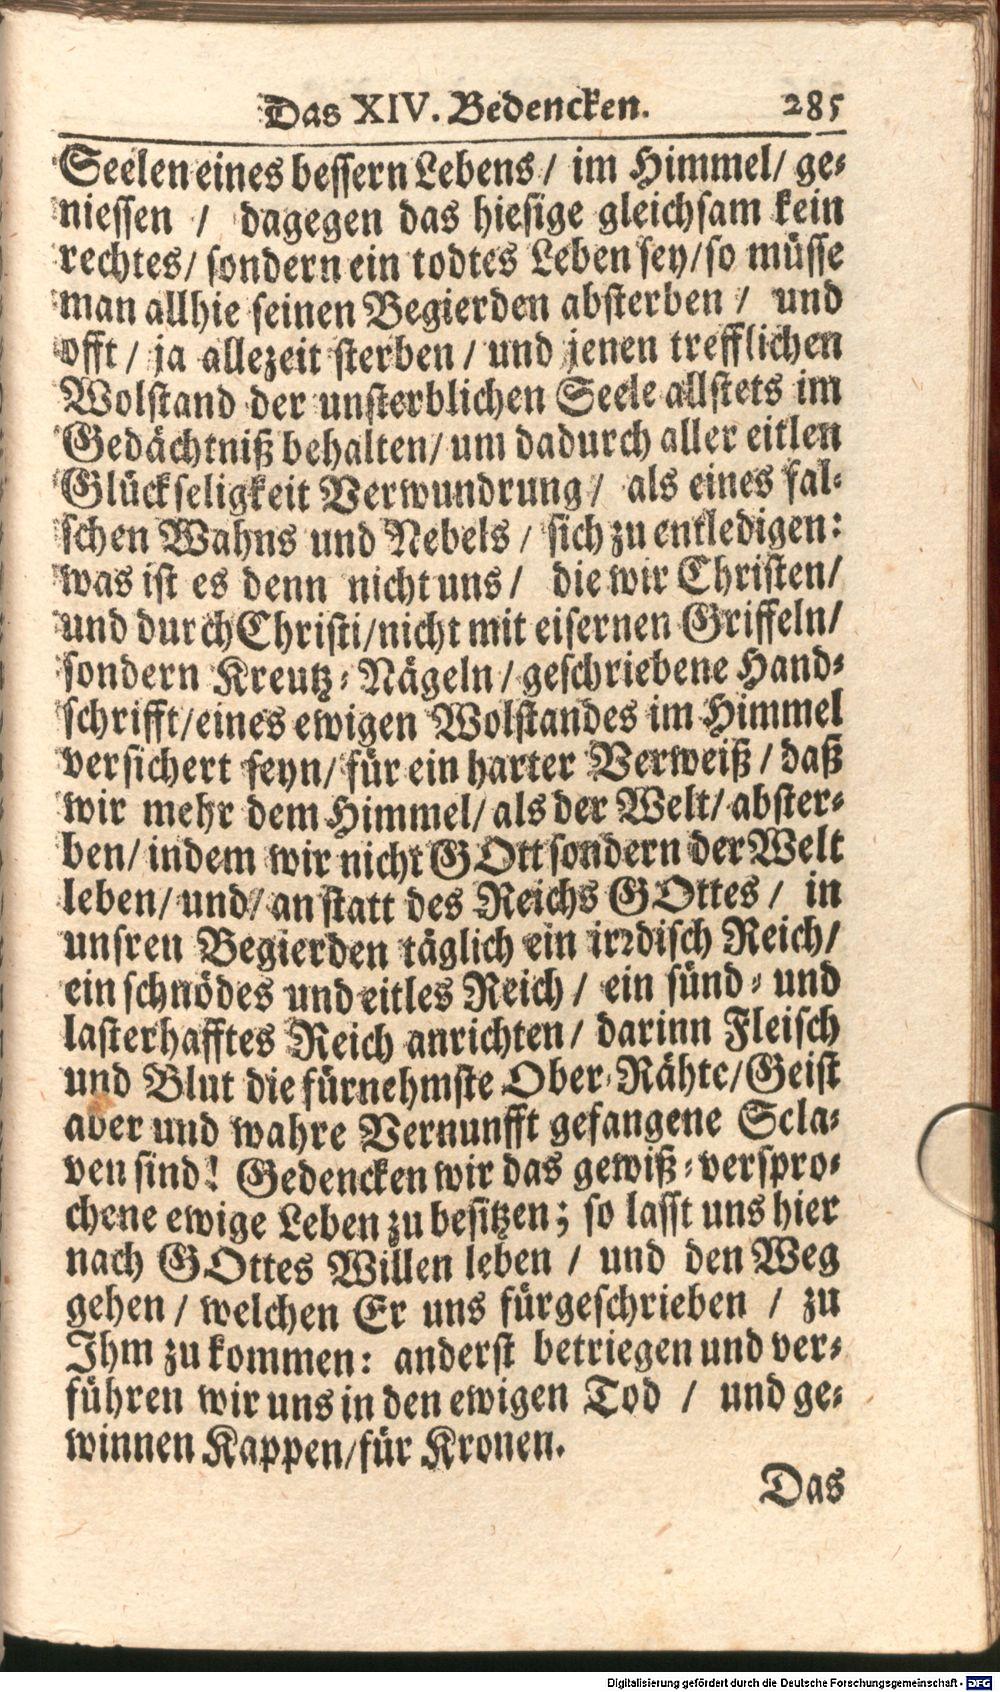 Das XIV. Bedencken. 285
Seelen eines bessern Lebens/ im Himmel/ ge-
niessen / dagegen das hiesige gleichsam kein
rechtes/ sondern ein todtes Leben sey/ so müsse
man allhie seinen Begierden absterben / und
offt/ ja allezeit sterben / und jenen trefflichen
Wolstand der unsterblichen Seele allstets im
Gedächtniß behalten/ um dadurch aller eitlen
Glückseligkeit Verwundrung/ als eines fal-
schen Wahns und Nebels / sich zu entledigen:
was ist es denn nicht uns/ die wir Christen/
und durch Christi/ nicht mit eisernen Griffeln/
sondern Kreutz-Nägeln/ geschriebene Hand-
schrifft/ eines ewigen Wolstandes im Himmel
versichert seyn/ für ein harter Verweiß / daß
wir mehr dem Himmel/ als der Welt/ abster-
ben/ indem wir nicht GOtt sondern der Welt
leben/ und/ an statt des Reichs GOttes / in
unsren Begierden täglich ein irrdisch Reich/
ein schnödes und eitles Reich / ein sünd- und
lasterhafftes Reich anrichten/ darinn Fleisch
und Blut die fürnehmste Ober-Rähte/ Geist
aber und wahre Vernunfft gefangene Scla-
ven sind! Gedencken wir das gewiß-verspro-
chene ewige Leben zu besitzen; so lasst uns hier
nach GOttes Willen leben / und den Weg
gehen / welchen Er uns fürgeschrieben / zu
Ihm zu kommen: anderst betriegen und ver-
führen wir uns in den ewigen Tod / und ge-
winnen Kappen/ für Kronen.
Das
Digitalisierung gefördert durch die Deutsche Forschungsgemeinschaft - DFG